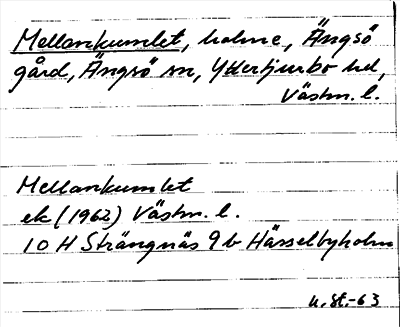 Mellankumlet, holme, Ängsö
gård, Ängsö sn, Yttertjurbo hd,
Västm. l.
Mellankumlet
ek (1962) Västm. l.
10 H Strängnäs 9 b Hässelbyholm
u.st.-63